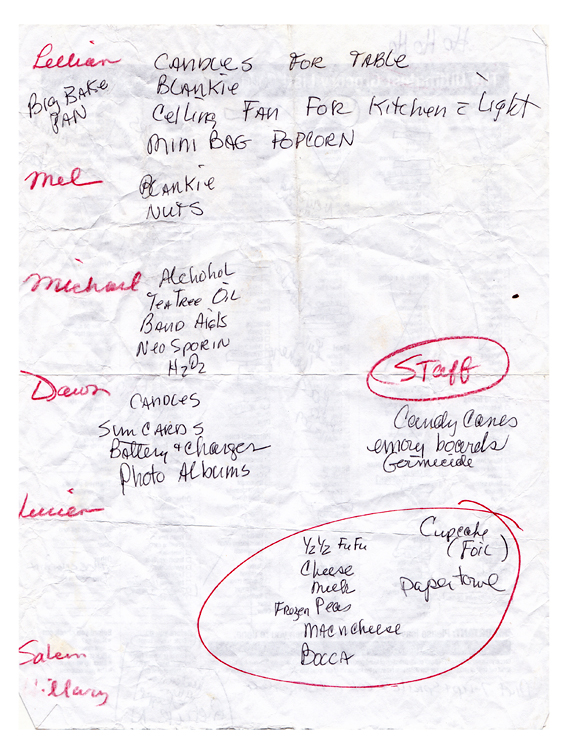 Lellian
CANDLES FOR TABLE
BIG BAKE
PAN
BLANKIE
CeLLing FAN FOR Kitchen = Light
MINI BAG POPCORN
Mel
BLANKIE
NUTS
Michael
Alchohol
TEA TREE OIL
BAND AIDS
NEOSPORIN
H2O2
STaff
Dawn
CANDLES
Candy Canes
SIM CARDS
emory boards
Battery + Charger
Germicide
Photo Albums
Lucien
Cupcake
(FOIL)
1/2 1/2 FuFu
Cheese
milk
paper towel
Frozen Peas
MAC n CHeese
BOCCA
Salem
Hillary